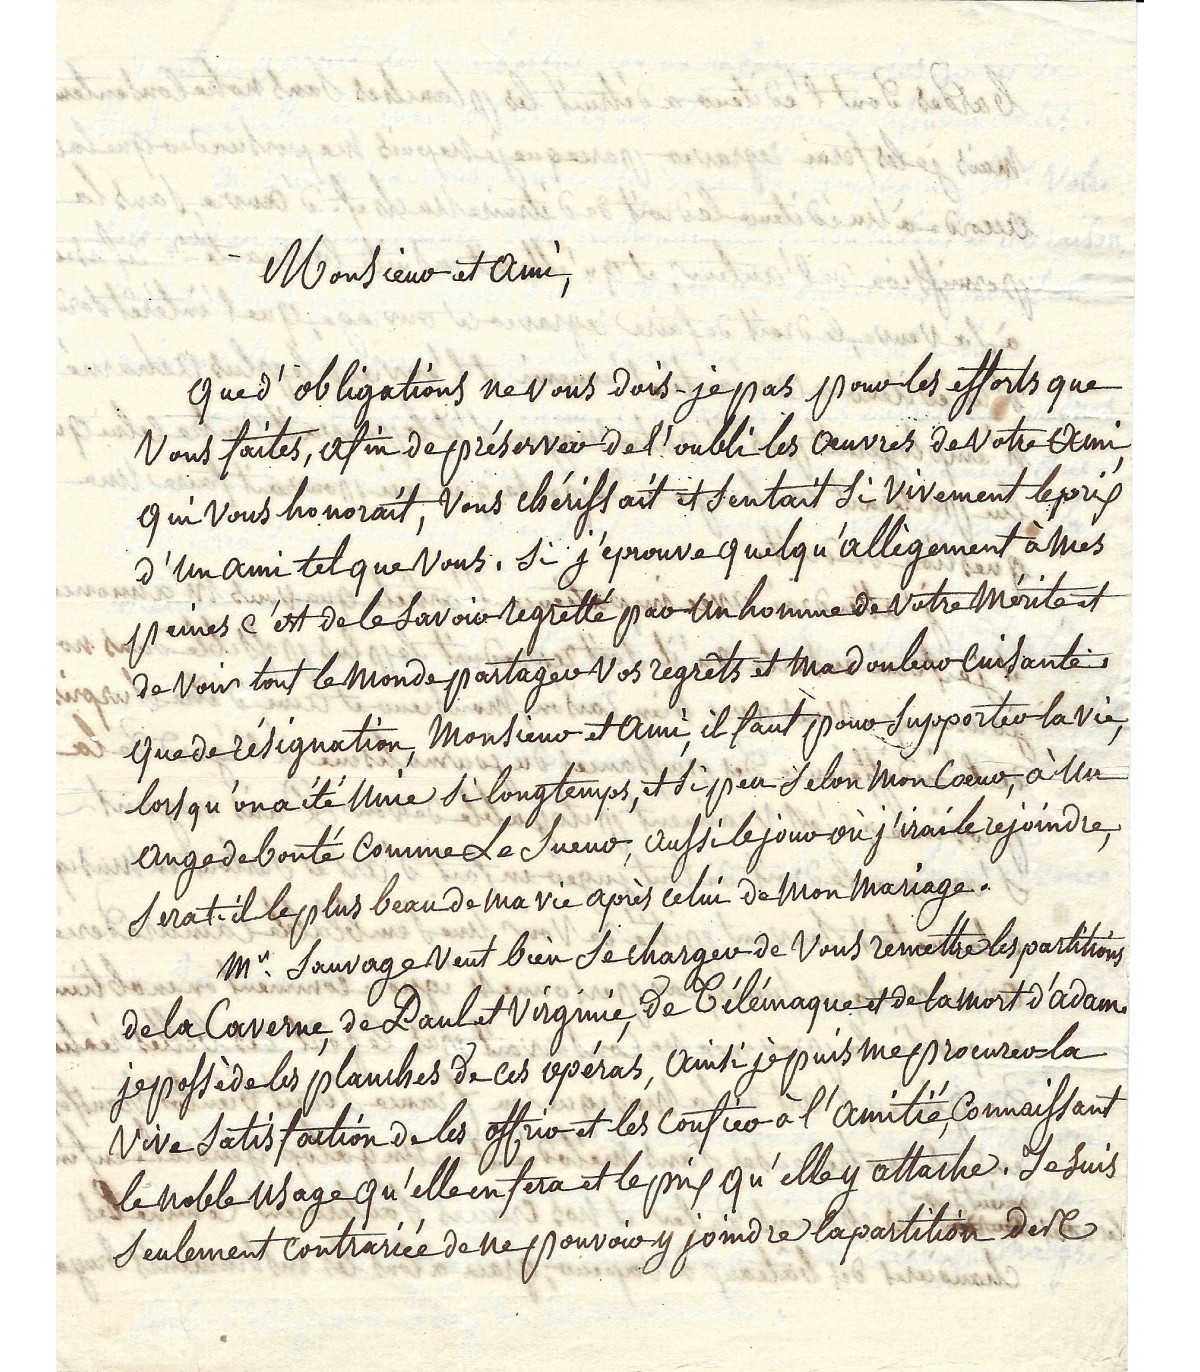 Monsieur et Ami,
Que d'obligations ne vous dois-je pas pour les efforts que
Vous faites, afin de préserver de l'oubli les œuvres de votre Ami,
qui vous honorait, vous chérissait et sentait si vivement le prix
d'un ami tel que vous. Si j'éprouve quelqu'allègement à mes
peines c'est de le savoir regretté par un homme de votre Mérite et
de voir tout le monde partager vos regrêts et ma douleur cuisante.
que de résignation, Monsieur et Ami, il faut pour supporter la vie,
lorsqu'on a été unie si longtemps, et si peu selon mon Cœur, à un
ange de bonté comme Le Sueur, aussi le jour où j'irai le rejoindre,
sera-t-il le plus beau de ma vie après celui de mon Mariage.
Mr. Sauvage veut bien se charger de vous remettre les partitions
de la Caverne, de Paul et Virginie, de Télémaque et de la mort d'adam.
je possède les planches de ces opéras, ainsi je puis me procurer la
vive satisfaction de les offrir et les confier à l'amitié, connaissant
le noble usage qu'elle en fera et le prix qu'elle y attache. Je suis
seulement contrariée de ne pouvoir y joindre la partition des